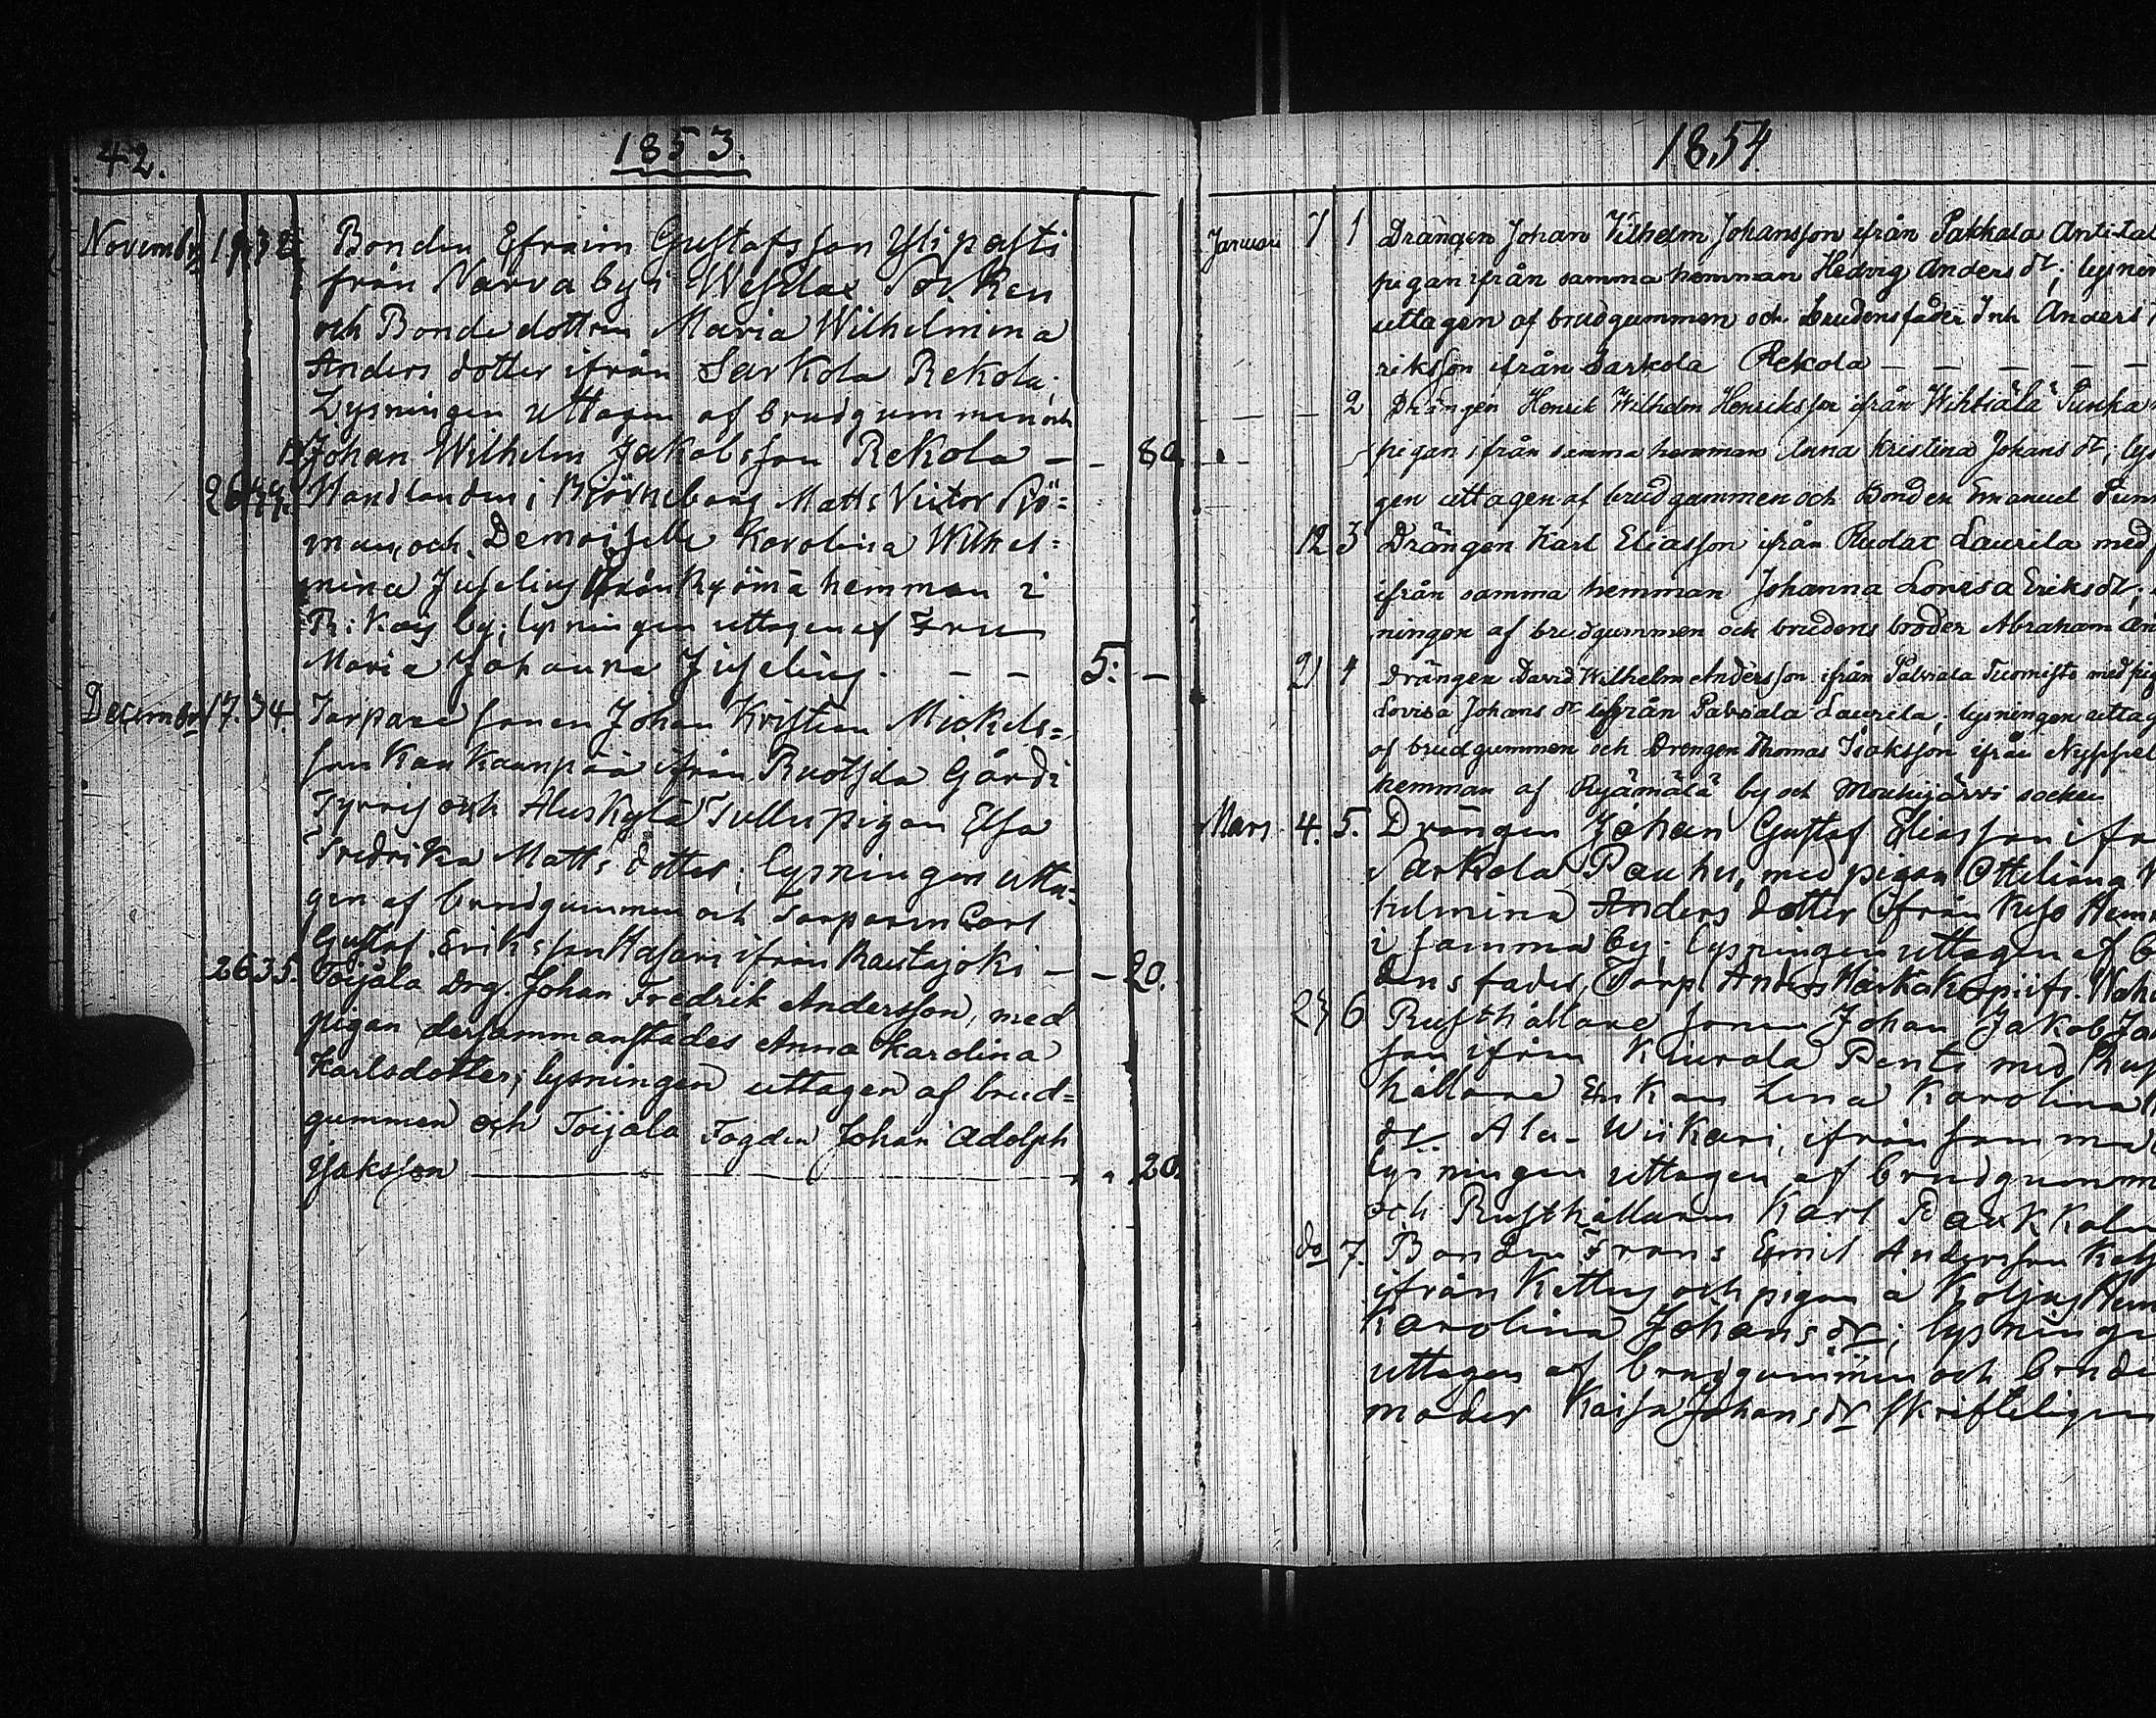 42. 1853.
Novembr 19 32 Bonden Efraim Gustafsson Ylipasti
från Narva by i Wesilax Socken
och Bonde dottren Maria Wilhelmina
Anders dotter ifrån Sarkola Rekola;
Lysningen uttagen af brudgummen och
Johan Wilhelm Jakobsson Rekola — - 80
26 33. Handlanden i Björneborg Matts Victor Björ=
man, och Demoiselle Karolina Wilhel=
mina Juselius ifrån Kyömä hemman i
by; lysningen uttagen af Fru
Maria Johanna Juselius. — — 5: —
Decembr 17. 34. Torpare sonen Johan Kristian Mickels=
son Kankaanpää ifrån Ruotsila Gård i
Tyrvis och Aluskylä Tullu pigan Elsa
Fredrika Matts dotter; lysningen utta=
gen af brudgummen och Torparen Carl
Gustaf Eriksson Hasari ifrån Rautajoki — - 20.
26 35. Toijala Drg. Johan Fredrik Andersson, med
pigan dersammanstädes Anna Karolina
Karlsdotter; lysningen uttagen af brud=
gummen och Toijala Fogden Johan Adolph
Isaksson — 20.
1854
Januari 7 1 Drängen Johan Vilhelm Johansson ifrån Pakkala Anti-tal
pigan ifrån samma hemman Hedvig Anders dr; lysnin
uttagen af brudgummen och brudens fader Inh Anders
riksson ifrån Sarkola Rekola — — — — —
— — 2 Drängen Henrik Wilhelm Henriksson ifrån Wihtiälä Punka
pigan ifrån samma hemman Anna Kristina Johans dr; lys
gen uttagen af brudgummen och Bonden Emanuel Pun
12 3 Drängen Karl Eliasson ifrån Ruolax Laurila med
ifrån samma hemman Johanna Lovisa Eriksdr;
ningen af brudgummen och brudens broder Abraham An
21 4 Drängen David Wilhelm Andersson ifrån Palviala Tuomisto med pig
Lovisa Johans dr ifrån Palviala Laurila; lysningen uttag
af brudgummen och Drengen Thomas Isaksson ifrån Nyppel
hemman af Ryämälä by och Mouhijärvi socken
Mars 4. 5. Drängen Johan Gustaf Eliasson ifr
Sarkola Pauhu, med pigan Ottiliana W
helmina Anders dotter ifrån Kuso Hem
i samma by; lysningen uttagen af b
dens fader, Torp. Anders
6 Rusthållare sonen Johan Jakob Ja
son ifrån Kiurala Penti med Rus
hållare Enkan Lena Karolina
dr Ala-Wiikari, ifrån samma
lysningen uttagen af brudgumm
och Rusthållaren Karl
do 7. Bonden Frans Emil Andersson
ifrån Kettus och pigan å Koljus Hem
Karolina Johans dr; lysninge
uttagen af brudgummen och brude
moder Kaisa Johans dr skrifteligen